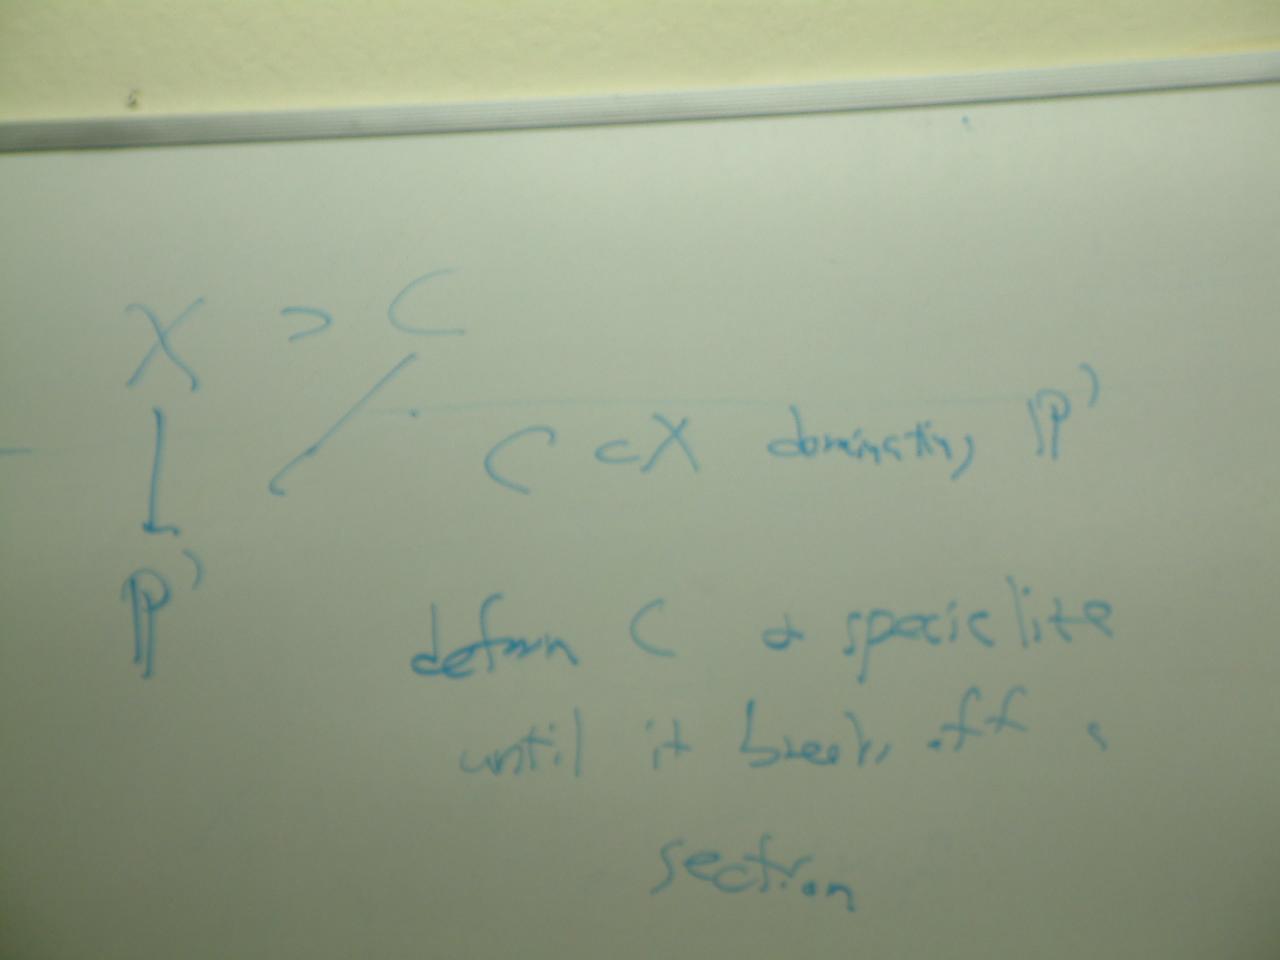 X ⊃ C
C ⊂ X dominating ℙ¹
ℙ¹
deform C & specialize
until it breaks off a
section